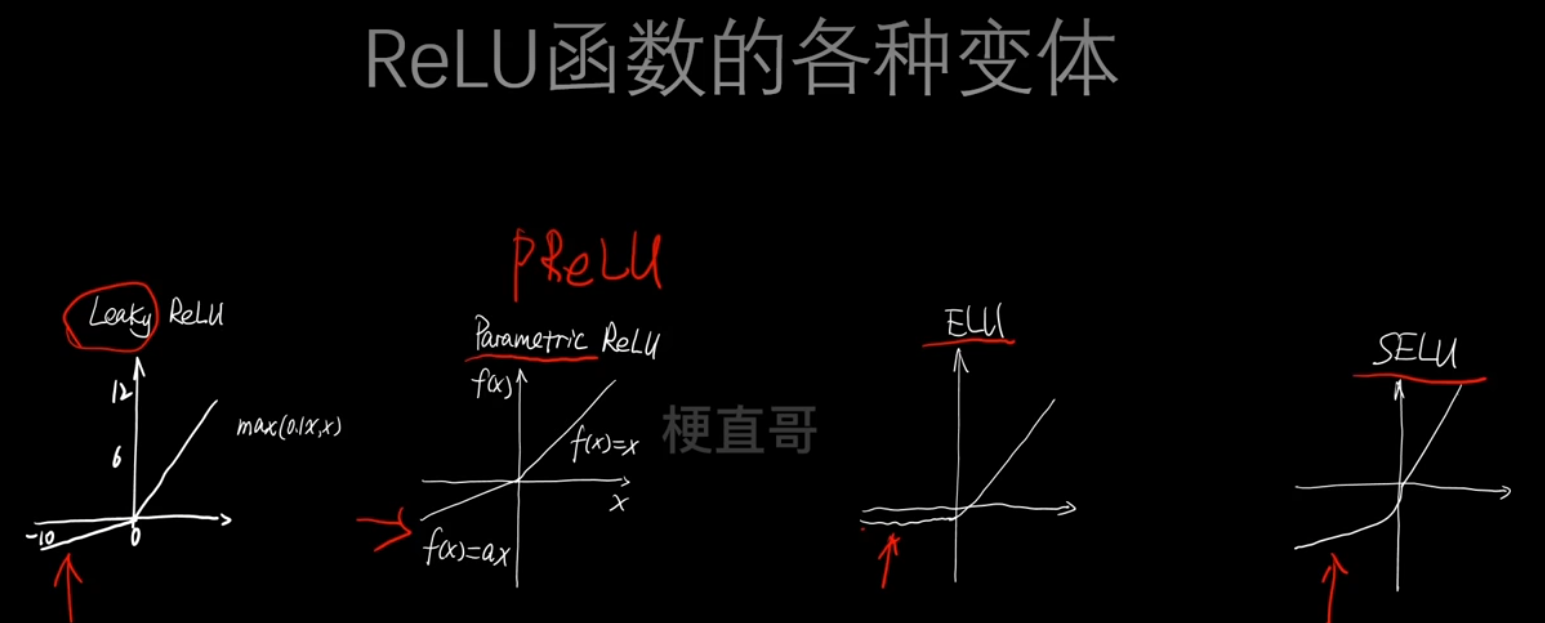 ReLU函数的各种变体
PReLU
Leaky ReLU
12
6
-10
0
max(0.1x,x)
Parametric ReLU
f(x)
f(x)=x
x
f(x)=ax
梗直哥
ELU
SELU